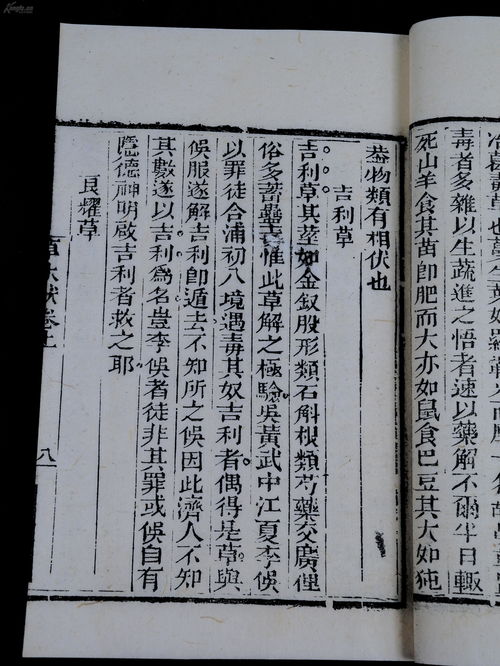 毒者多雜以生蔬進之悟者速以藥解不爾半日輒
死山羊食其苗卽肥而大亦如鼠食巴豆其大如㹠
葢物類有相伏也
吉利草
吉利草其莖如金釵股形類石斛根類芍藥交廣俚
俗多蓄蠱毒惟此草解之極驗吳黃武中江夏李俁
以罪徒合浦初入境遇毒其奴吉利者偶得是草與
俁服遂解吉利卽遁去不知所之俁因此濟人不知
其數遂以吉利爲名豈李俁者徒非其罪或俁自有
隱德神明啟吉利者救之耶
良耀草
木狀卷上
八